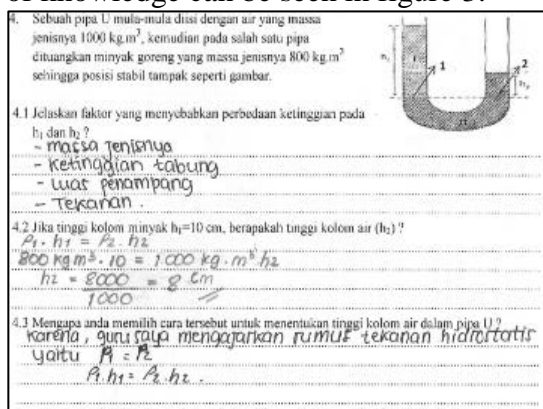 of knowledge can be seen in figure 3.
4. Sebuah pipa U mula-mula diisi dengan air yang massa
jenisnya 1000 kg.m³, kemudian pada salah satu pipa
dituangkan minyak goreng yang massa jenisnya 800 kg.m³
sehingga posisi stabil tampak seperti gambar.
1
2
4.1 Jelaskan faktor yang menyebabkan perbedaan ketinggian pada
h₁ dan h₂ ?
- massa jenisnya
- ketinggian tabung
- luas penampang
- Tekanan .
4.2 Jika tinggi kolom minyak h₁=10 cm, berapakah tinggi kolom air (h₂) ?
P₁ . h₁ = P₂ . h₂
800 kg m³ . 10 = 1000 kg . m³ h₂
h₂ = 8000 = 8 cm
1000
4.3 Mengapa anda memilih cara tersebut untuk menentukan tinggi kolom air dalam pipa U ?
karena, guru saya mengajarkan rumus tekanan hidrostatis
yaitu P₁ = P₂
P₁.h₁ = P₂.h₂ .